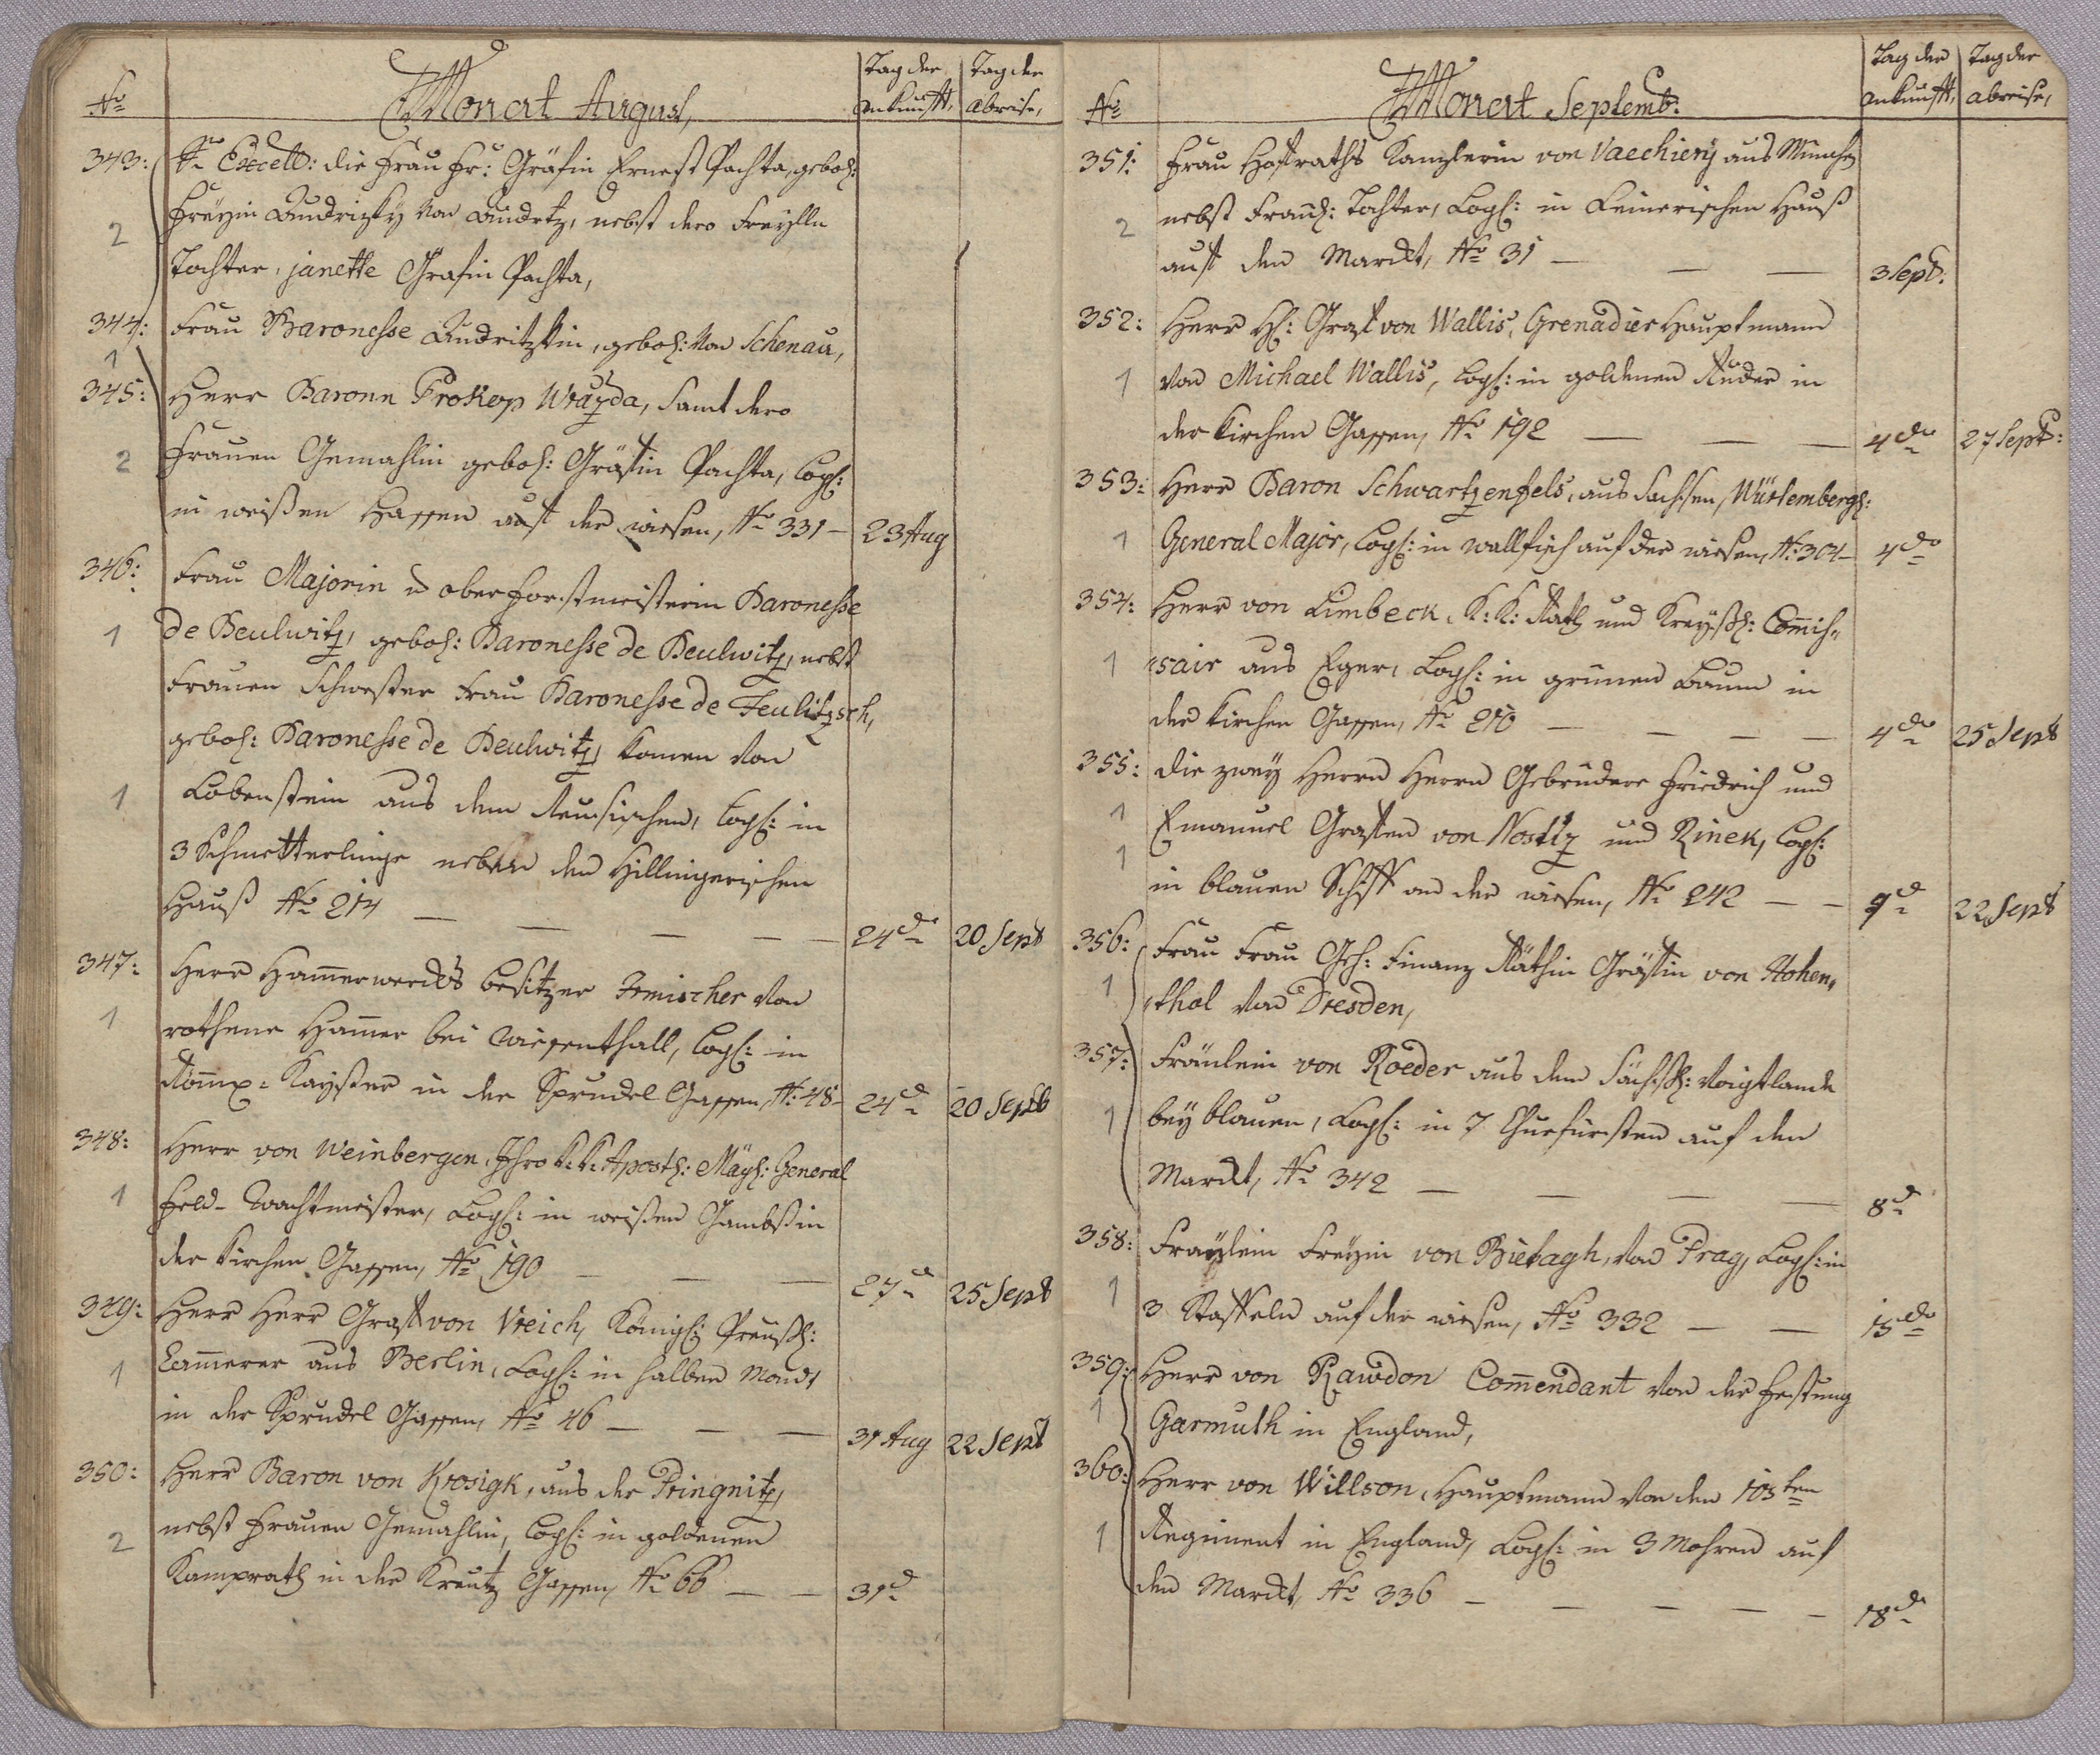 No
Monat August,
Tag der ankunfft,
Tag der abreise,
343: Ihro Excell: die Frau Fr: Gräfin Ernest Pachta, geboh:
2 Freÿin Audrizkÿ von Audretz, nebst dero Freÿlle
Tochter, janette Gräfin Pachta,
344: Frau Baronesse Audritzkin, geboh: von Schenau,
1
345: Herr Baronn Prokop Wražda, samt dero
2 Frauen Gemahlin geboh: Gräfin Pachta, Logh:
in weißen Hassen auf der wiesen, No 331 – 23 Aug
346: Frau Majorin u oberforstmeisterin Baronesse
1 de Beulwitz, geboh: Baronesse de Beulwitz, nebst
Frauen Schwester Frau Baronesse de Feulitzsch,
geboh: Baronesse de Beulwitz, komen von
1 Lobenstein aus dem Reusischen, Logh: in
3 Schmetterlinge neben den Hillingerischen
Hauß No 214 — — — — 24do 20 Sept
347: Herr Hamerwercks besitzer Irmischer von
1 rothene Hamer bei Wiesenthall, Logh: in
Römx: Kayster in der Sprudel Gassen, No: 48 – 24d 20 Sept
348: Herr von Weinbergen, Ihro K: K: Aposth: Mäyh: General
1 Feld-Wachtmeister, Logh: in weißen Gambß in
der Kirchen Gassen, No 190 — — — 27d 25 Sept
349: Herr Herr Graff von Vreich, Königh: Preüßh:
1 Camerer aus Berlin, Logh: in halben Mond,
in der Sprudel Gassen, No 46 — — — 31 Aug 22 Sept
350: Herr Baron von Krosigk, aus der Pringnitz,
2 nebst Frauen Gemahlin, Logh: in goldenen
Kamprath in der Kreutz Gassen, No 66 — — 31d
No
Monat Septemb:
Tag der ankunfft,
Tag der abreise,
351: Frau Hoffraths Kanzlerin von Vaechierÿ aus Münch
2 nebst Frauh: Tochter, Logh: in Leinerischen Hauß
auf den Marckt, No 31 — — — 3 Sept:
352: Herr Hh: Graff von Wallis, Grenadier Hauptmann
1 von Michael Wallis, Logh: in goldenen Ruder in
der Kirchen Gassen, No 192 — — — 4do 27 Sept:
353: Herr Baron Schwartzenfels, aus Sachsen, Würtembergh:
1 General Major, Logh: in wallfisch auf der wiesen, No: 304 – 4do
354: Herr von Limbeck, K: K: Rath und Kreÿßh: Comis„
1 „sair aus Eger, Logh: in grünen Baum in
der Kirchen Gassen, No 210 — — — — 4do 25 Sept
355: die zweÿ Herrn Herrn Gebrüdere Friedrich und
1 Emanuel Graffen von Nostitz und Rinek, Logh:
1 in blauen Schiff an der wiesen, No 242 — — 9d 22 Sept
356: Frau Frau Geh: Finanz Räthin Gräffin von Hohen„
1 „thal von Dresden,
357: Fräulein von Roeder aus dem Sächsh: Voigtlande
1 beÿ blauen, Logh: in 7 Churfürsten auf den
Marckt, No 342 — — — — 8d
358: Fraÿlein Freÿin von Biebagh, von Prag, Logh: in
1 3 Staffeln auf der wiesen, No 332 — — 15do
359: Herr von Rawdon Comendant von der Festung
1 Garmuth in England,
360: Herr von Willson, Hauptmann von den 103ten
1 Regiment in England, Logh: in 3 Mohren auf
den Marckt, No 336 — — — — — 18d